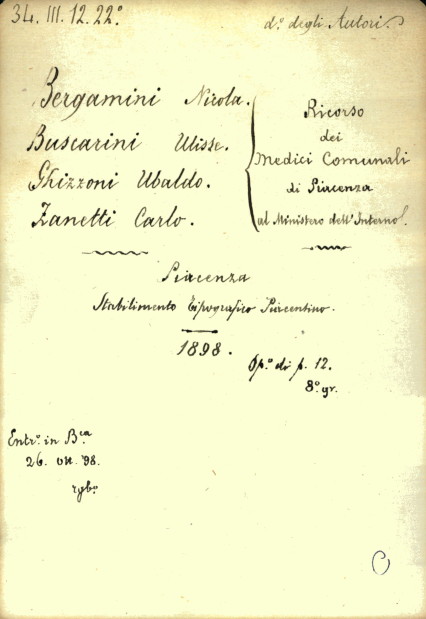 34. III. 12. 22º
dº. degli Autori.
Bergamini Nicola.
Buscarini Ulisse.
Ghizzoni Ubaldo.
Zanetti Carlo.
Ricorso
dei
Medici Comunali
di Piacenza
al Ministero dell'Interno.
Piacenza
Stabilimento Tipografico Piacentino.
1898.
Op.º di p. 12.
8.º gr.
Entr.º in B.ca
26. ott. '98.
C